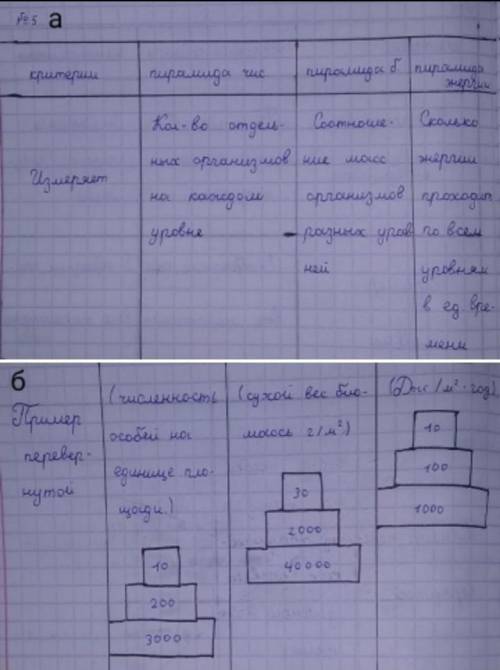 №5 а
критерии
пирамида чис
пирамида б
пирамида
энергии
Измеряет
Кол-во отдель-
ных организмов
на каждом
уровне
Соотноше-
ние масс
организмов
разных уров
ней
Сколько
энергии
проходит
по всем
уровням
в ед. вре-
мени
б
Пример
перевер-
нутой
(численность
особей на
единице пло-
щади.)
10
200
3000
(сухой вес био-
массы г/м²)
30
2000
40000
(Дж/м²·год)
10
100
1000